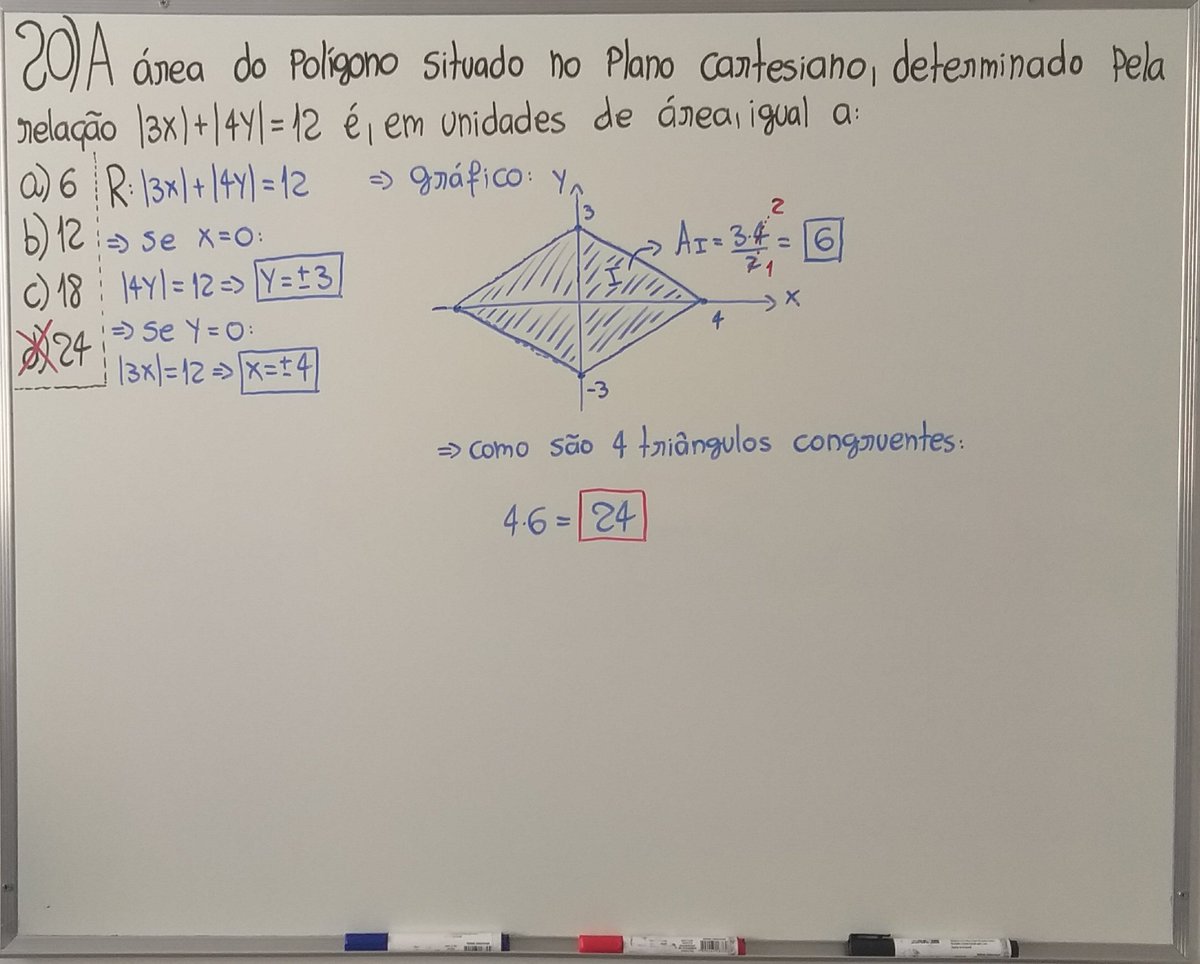 20) A área do polígono situado no plano cartesiano, determinado pela
relação |3x|+|4y|=12 é, em unidades de área, igual a:
a) 6
b) 12
c) 18
d) 24
R: |3x|+|4y|=12
⇒ se x=0:
|4y|=12 ⇒ y=±3
⇒ se y=0:
|3x|=12 ⇒ x=±4
⇒ gráfico:
y
3
I
A_I = 3·4/2 = 6
2
1
x
4
-3
⇒ como são 4 triângulos congruentes:
4·6 = 24